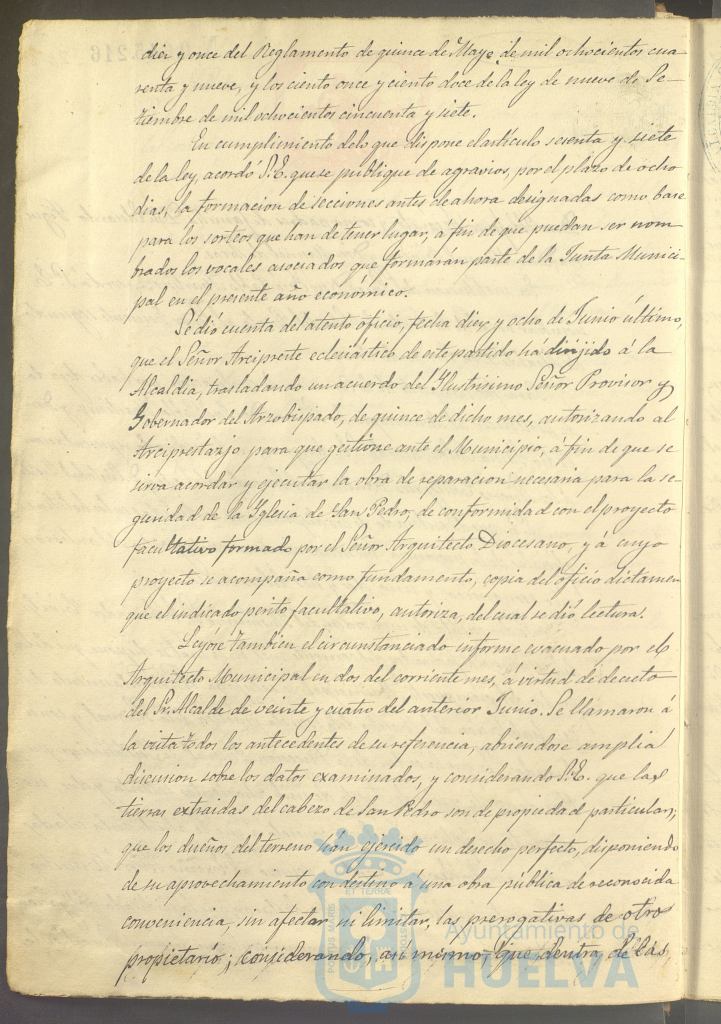 diez y once del Reglamento de quince de Mayo de mil ochocientos cua-
renta y nueve, y los ciento once y ciento doce de la ley de nueve de Se-
tiembre de mil ochocientos cincuenta y siete.
En cumplimiento de lo que dispone el artículo sesenta y siete
de la ley, acordó S.E. que se publique de agravios, por el plazo de ocho
dias, la formacion de secciones antes de ahora designadas como base
para los sorteos que han de tener lugar, á fin de que puedan ser nom-
brados los vocales asociados que formarán parte de la Junta Munici-
pal en el presente año económico.
Se dió cuenta del atento oficio, fecha diez y ocho de Junio último,
que el Señor Arcipreste eclesiástico de este partido há dirijido á la
Alcaldia, trasladando un acuerdo del Ilustrisimo Señor Provisor y
Gobernador del Arzobispado, de quince de dicho mes, autorizando al
Arciprestazjo para que gestione ante el Municipio, á fin de que se
sirva acordar y ejecutar la obra de reparacion necesaria para la se-
guridad de la Iglesia de San Pedro, de conformidad con el proyecto
facultativo formado por el Señor Arquitecto Diocesano, y á cuyo
proyecto se acompaña como fundamento, copia del oficio dictamen
que el indicado perito facultativo, autoriza, del cual se dió lectura.
Leyóse tambien el circunstanciado informe evacuado por el
Arquitecto Municipal en dos del corriente mes, á virtud de decreto
del Sr. Alcalde de veinte y cuatro del anterior Junio. Se llamaron á
la vista todos los antecedentes de su referencia, abriendose amplia
discusion sobre los datos examinados, y considerando S.E. que las
tierras extraidas del cabezo de San Pedro son de propiedad particular;
que los dueños del terreno hán ejercido un derecho perfecto, disponiendo
de su aprovechamiento con destino á una obra pública de reconocida
conveniencia, sin afectar ni limitar, las prerogativas de otro
propietario; considerando, así mismo, que dentro de las
Ayuntamiento de
HUELVA